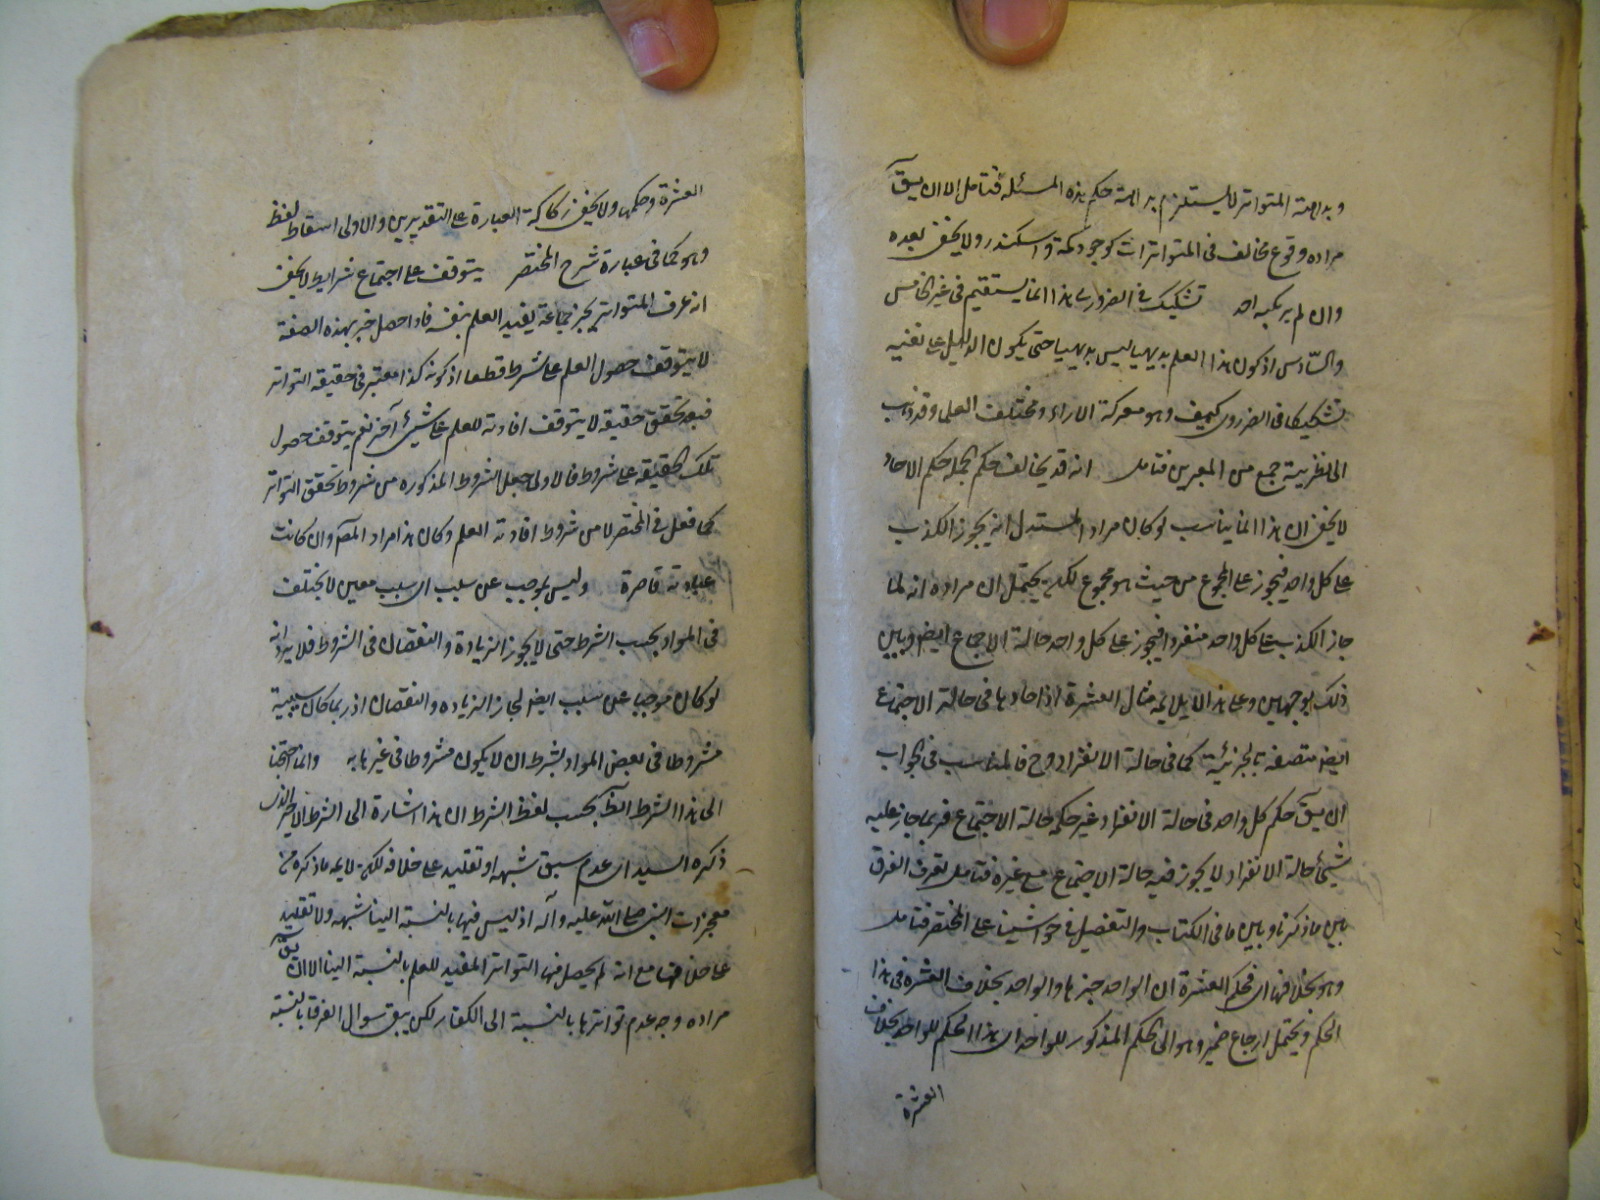 وبداهة المتواتر لا يستلزم بداهة حكم هذه المسئلة فتامل الا ان يق
مراده وقوع مخالف فى المتواترات كوجود مكة واسكندر ولا يخفى بعده
وان لم يرتكبه احد تشكيك فى الضرورى هذا انما يستقيم فى غير الخامس
والسادس اذ كون هذا العلم بديهيا ليس بديهيا حتى يكون الدليل على نفيه
تشكيكا فى الضرورى كيف وهو معركة الاراء ومختلف العلما وقد ذهب
الى نظريته جمع من المعتبرين فتامل انه قد يخالف حكم الجملة حكم الاحاد
لا يخفى ان هذا انما يناسب لو كان مراد المستدل انه يجوز الكذب
على كل واحد فيجوز على المجموع من حيث هو مجموع لكنه يحتمل ان مراده انه لما
جاز الكذب على كل واحد منفردا فيجوز على كل واحد حالة الاجماع ايض وبين
ذلك بوجهين وعلى هذا لا يلايمه مثال العشرة اذ احادها فى حالة الاجتماع
ايض متصفة بالجزئية كما فى حالة الانفراد وح فالمناسب فى الجواب
ان يق حكم كل واحد فى حالة الانفراد غير حكمه حالة الاجتماع فربما جاز عليه
شيئ حالة الانفراد لا يجوز فيه حالة الاجتماع مع غيره فتامل تعرف الفرق
بين ما ذكرنا وبين ما فى الكتاب والتفصيل فى حواشينا على المختصر فتامل
وهو بخلافها اى فحكم العشرة ان الواحد جزءها والواحد بخلاف العشرة فى هذا
الحكم ويحتمل ارجاع ضمير وهو الى الحكم المذكور للواحد اى هذا الحكم للواحد بخلاف
العشرة
العشرة وحكمها ولا يخفى ركاكة العبارة على التقديرين والاولى اسقاط لفظ
وهو كما فى عبارة شرح المختصر يتوقف على اجتماع شرايط لا يخفى
انه عرف المتواتر بخبر جماعة يفيد العلم بنفسه فاذا حصل خبر بهذه الصفة
لا يتوقف حصول العلم على شرط قطعا اذ كونه كذا معتبر فى حقيقة التواتر
فبعد تحقق حقيقته لا يتوقف افادته للعلم على شيئ آخر نعم يتوقف حصول
تلك الحقيقة على شروط فالاولى جعل الشروط المذكورة من شروط تحقق التواتر
كما فعل فى المختصر لا من شروط افادته العلم وكان هذا مراد المصـ وان كانت
عبارته قاصرة وليس بموجب عن سبب اى سبب معين لا يختلف
فى المواد بحسب الشرط حتى لا يجوز الزيادة والنقصان فى الشروط فلا يرد انه
لو كان موجبا عن سبب ايض لجاز الزيادة والنقصان اذ ربما كان سببية
مشروطا فى بعض المواد بشرط ان لا يكون مشروطا فى غيرها به وانما احتجنا
الى هذا الشرط الظ بحسب لفظ الشرط ان هذا اشارة الى الشرط الاخير الذى
ذكره السيد اى عدم سبق شبهه او تقليد على خلافه لكنه لا يلايمه ما ذكره من
معجزات النبى صلى الله عليه وآله اذ ليس فيها بالنسبة الينا شبهه ولا تقليد
على خلافها مع انه لم يحصل فيها التواتر المفيد للعلم بالنسبة الينا الا ان يق
مراده وجه عدم تواترها بالنسبة الى الكفار لكن يبقى سوال الفرق بالنسبة